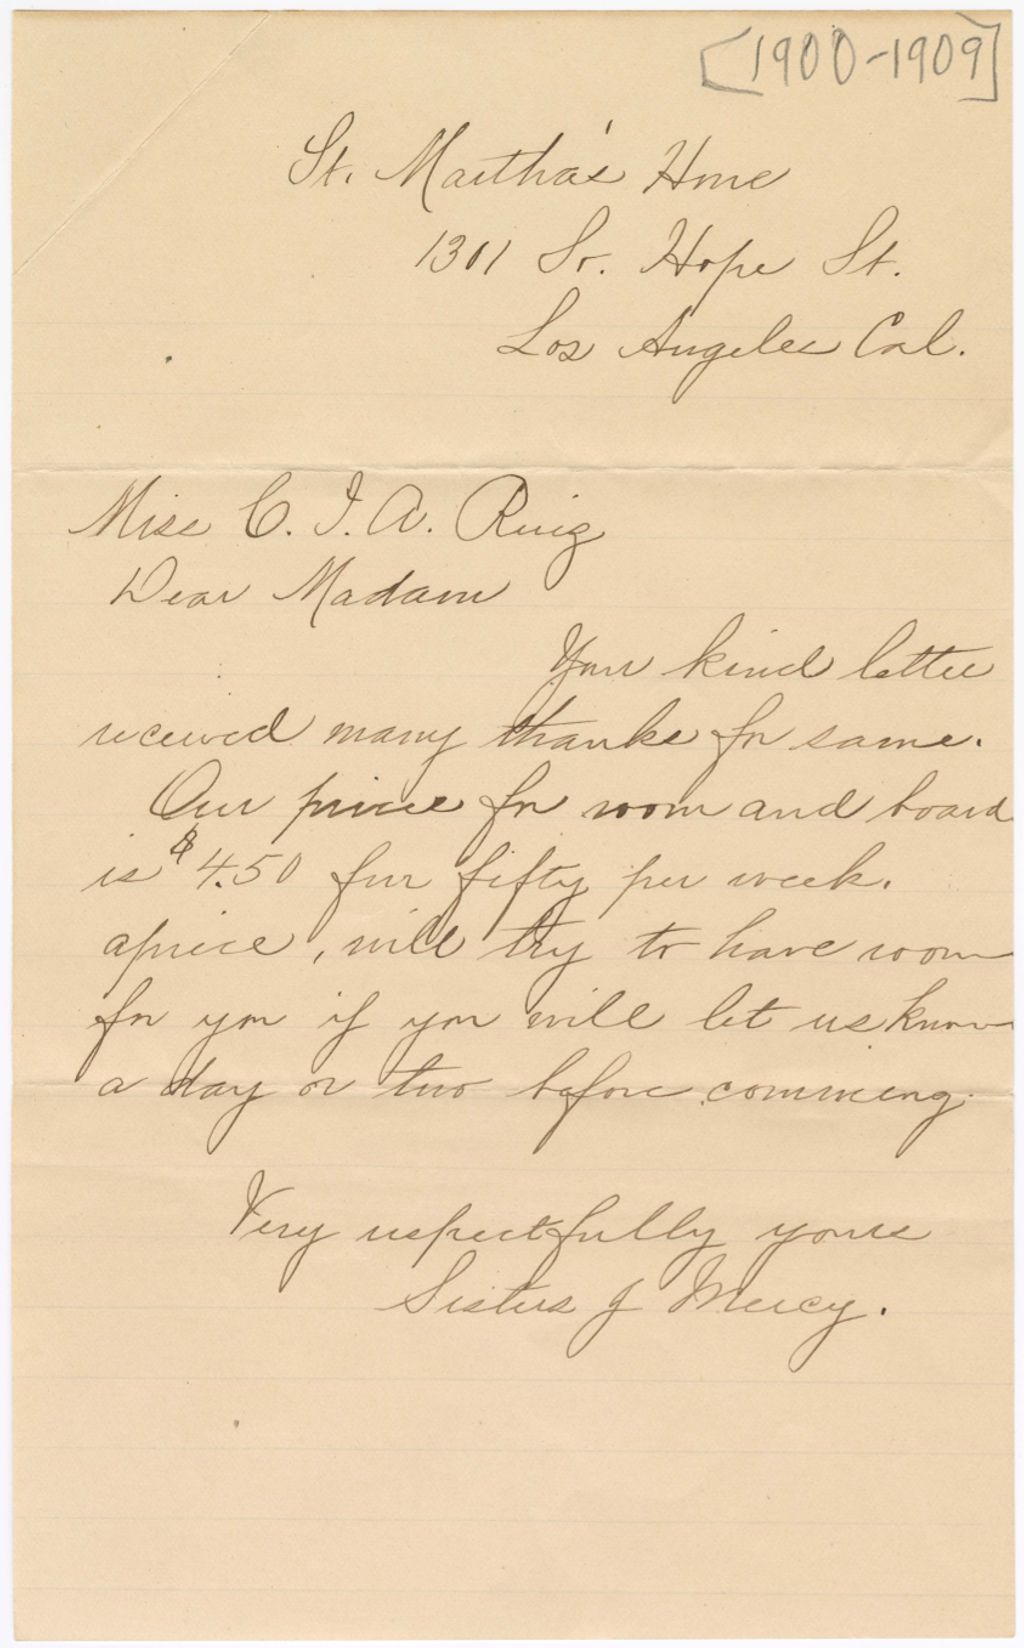 [1900-1909]
St. Martha's Home
1301 So. Hope St.
Los Angeles Cal.
Miss C. I. A. Ruiz
Dear Madam
Your kind letter
received many thanks for same.
Our price for room and board
is $4.50 four fifty per week.
apiece, will try to have room
for you if you will let us know
a day or two before comming.
Very respectfully yours
Sisters of Mercy.